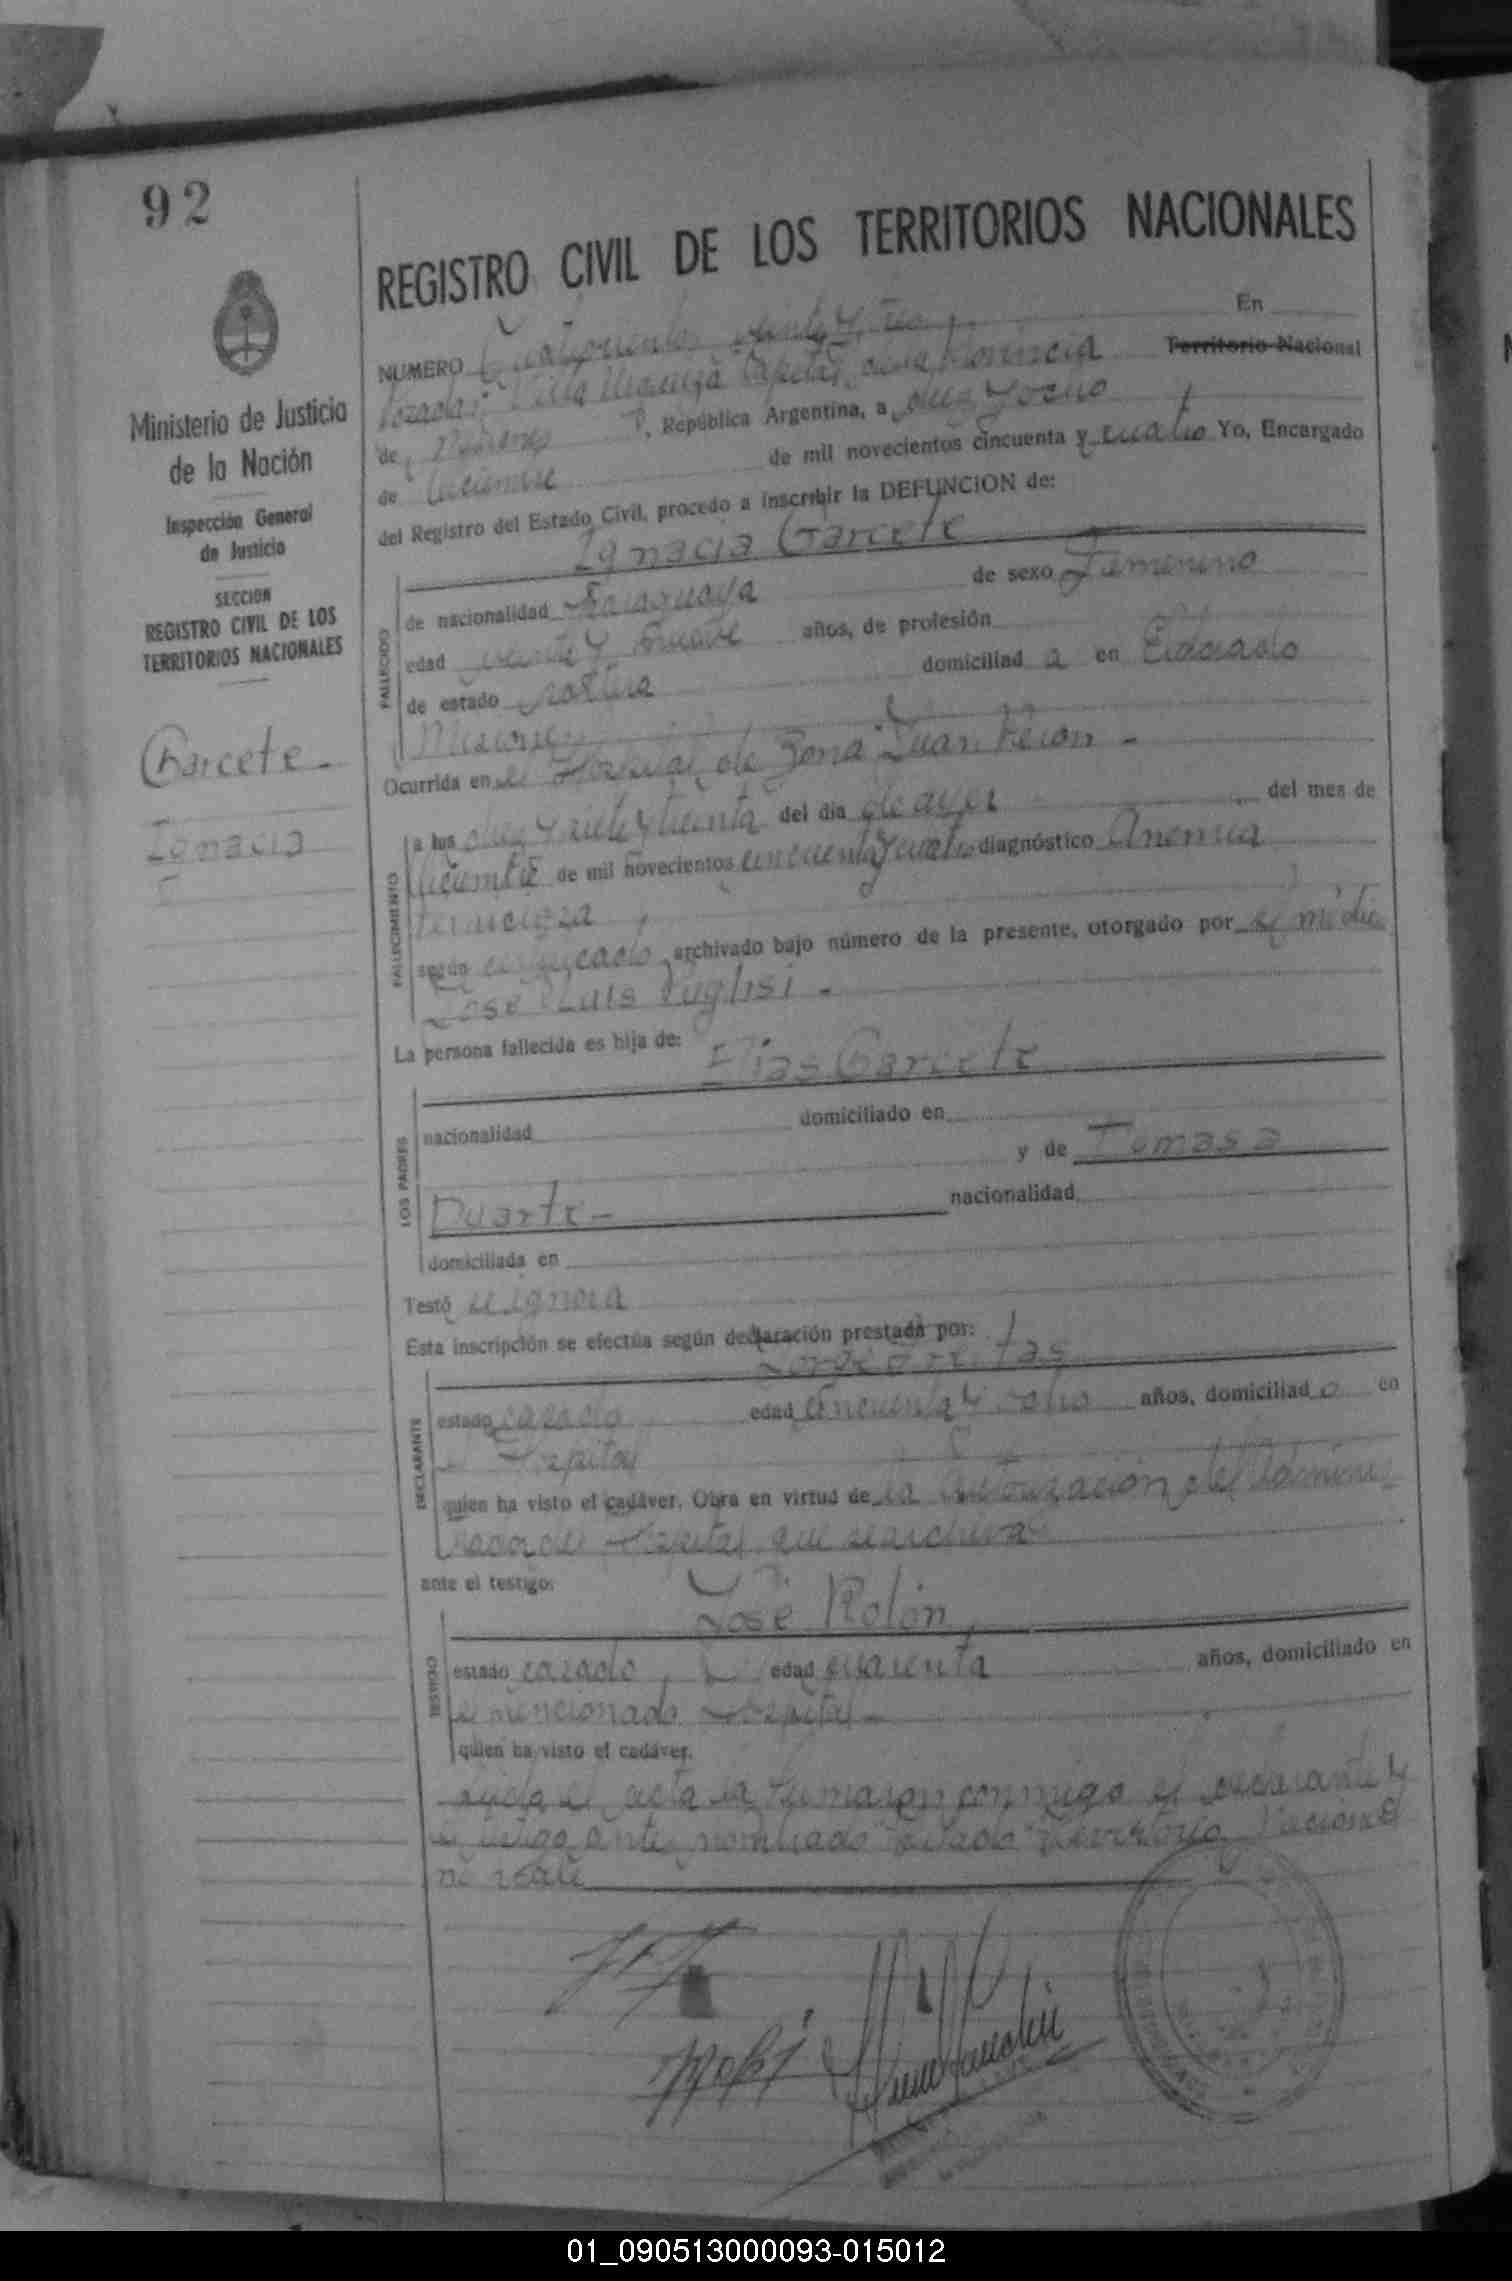 92
REGISTRO CIVIL DE LOS TERRITORIOS NACIONALES
Ministerio de Justicia
de la Nación
Inspección General
de Justicia
SECCION
REGISTRO CIVIL DE LOS
TERRITORIOS NACIONALES
Garcete -
Ignacia
NUMERO Cuatrocientos veinte y tres En
Posadas, Capital de la Provincia Territorio Nacional
de Misiones, República Argentina, a diez y ocho
de Diciembre de mil novecientos cincuenta y cuatro Yo, Encargado
del Registro del Estado Civil, procedo a inscribir la DEFUNCION de:
Ignacia Garcete
FALLECIDO
de nacionalidad Paraguaya de sexo Femenino
edad veinte y nueve años, de profesión
de estado soltera domiciliad a en Eldorado
Misiones
Ocurrida en el Hospital de Zona Juan Perón -
FALLECIMIENTO
a las diez y siete y treinta del día de ayer del mes de
Diciembre de mil novecientos cincuenta y cuatro diagnóstico Anemia
perniciosa
según certificado archivado bajo número de la presente, otorgado por el médico
José Luis Puglisi -
La persona fallecida es hija de: Elias Garcete
LOS PADRES
nacionalidad domiciliado en
y de Tomasa
Duarte - nacionalidad
domiciliada en
Testó se ignora
Esta inscripción se efectúa según declaración prestada por:
DECLARANTE
estado casado edad cincuenta y ocho años, domiciliad o en
el Hospital
quien ha visto el cadáver. Obra en virtud de la autorización del Adminis-
trador del Hospital que se archiva
ante el testigo:
José Rolón,
TESTIGO
estado casado, edad cuarenta años, domiciliado en
el mencionado Hospital -
quien ha visto el cadáver.
Leída el acta la firmaron conmigo el declarante y
el testigo antes nombrado Testado "Territorio Nacional"
no vale
01_090513000093-015012